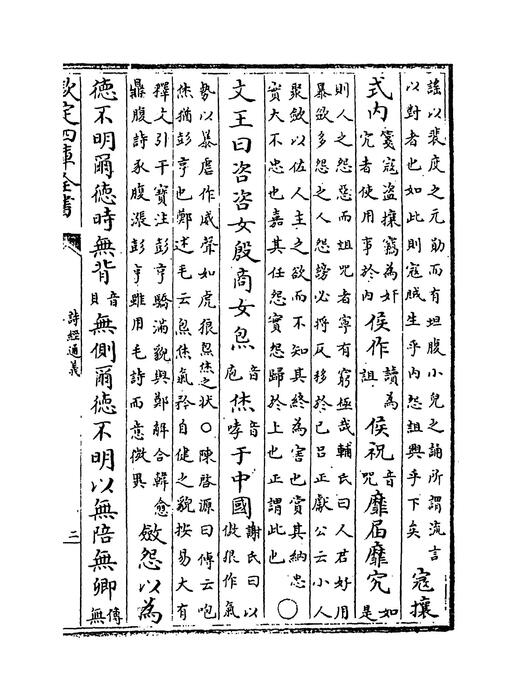 謠以裴度之元勛而有坦腹小兒之誦所謂流言
以對者也如此則寇賊生乎内怨詛興乎下矣
寇攘
式内
實寇盜攘竊為奸
宄者使用事於内
侯作
讀為
詛
侯祝
音
咒
靡届靡究
如
是
則人之怨惡而詛咒者寧有窮極哉輔氏曰人君好用
暴斂多怨之人怨謗必將反移於己吕正獻公云小人
聚斂以佐人主之欲而不知其終為害也賞其納忠
實大不忠也嘉其任怨實怨歸於上也正謂此也
○
文王曰咨咨女殷商女炰
音
庖
烋
音
哮
于中國
謝氏曰以
傲狠作氣
勢以暴虐作威聲如虎狼炰烋之狀○陳啓源曰傳云咆
烋猶彭亨也鄭述毛云炰烋氣矜自健之貌按易大有
釋文引干寶注彭亨驕滿貌與鄭觧合韓愈
鼎腹詩豕腹漲彭亨雖用毛詩而意微異
斂怨以為
德不明爾德時無背
音
貝
無側爾德不明以無陪無卿
傳
無
欽定四庫全書
詩經通義
二